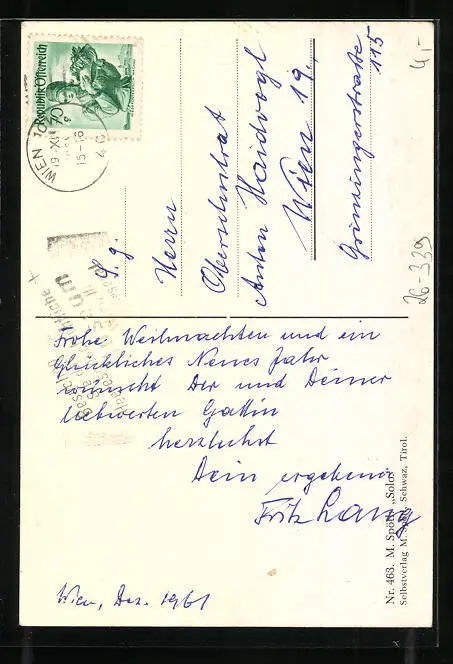 Frohe Weihnachten und ein
Glückliches Neues Jahr
wünscht Dir und Deiner
liebwerten Gattin
herzlichst
Dein ergebener
Fritz Lang
Wien, Dez. 1961
S. g.
Herrn
Oberschulrat
Anton Haidvogl
Wien 19.
Grinzingerstraße
115
Republik Österreich
70 g
WIEN
19. XII
15-16
4,-
26-339
Nr. 463. M. Spötl: „Solo“
Selbstverlag M. Spötl, Schwaz, Tirol.